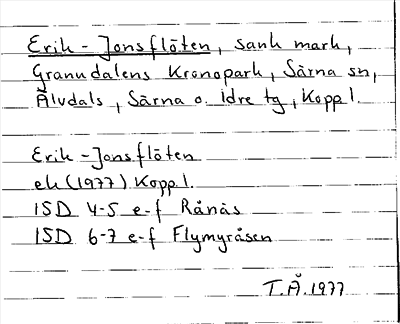 Erik-Jonsflöten, sank mark,
Granudalens Kronopark, Särna sn,
Älvdals, Särna o. Idre tg, Kopp l.
Erik-Jonsflöten
ek (1977) Kopp l.
ISD 4-5 e-f Rånäs
ISD 6-7 e-f Flymyråsen
T.Å. 1977